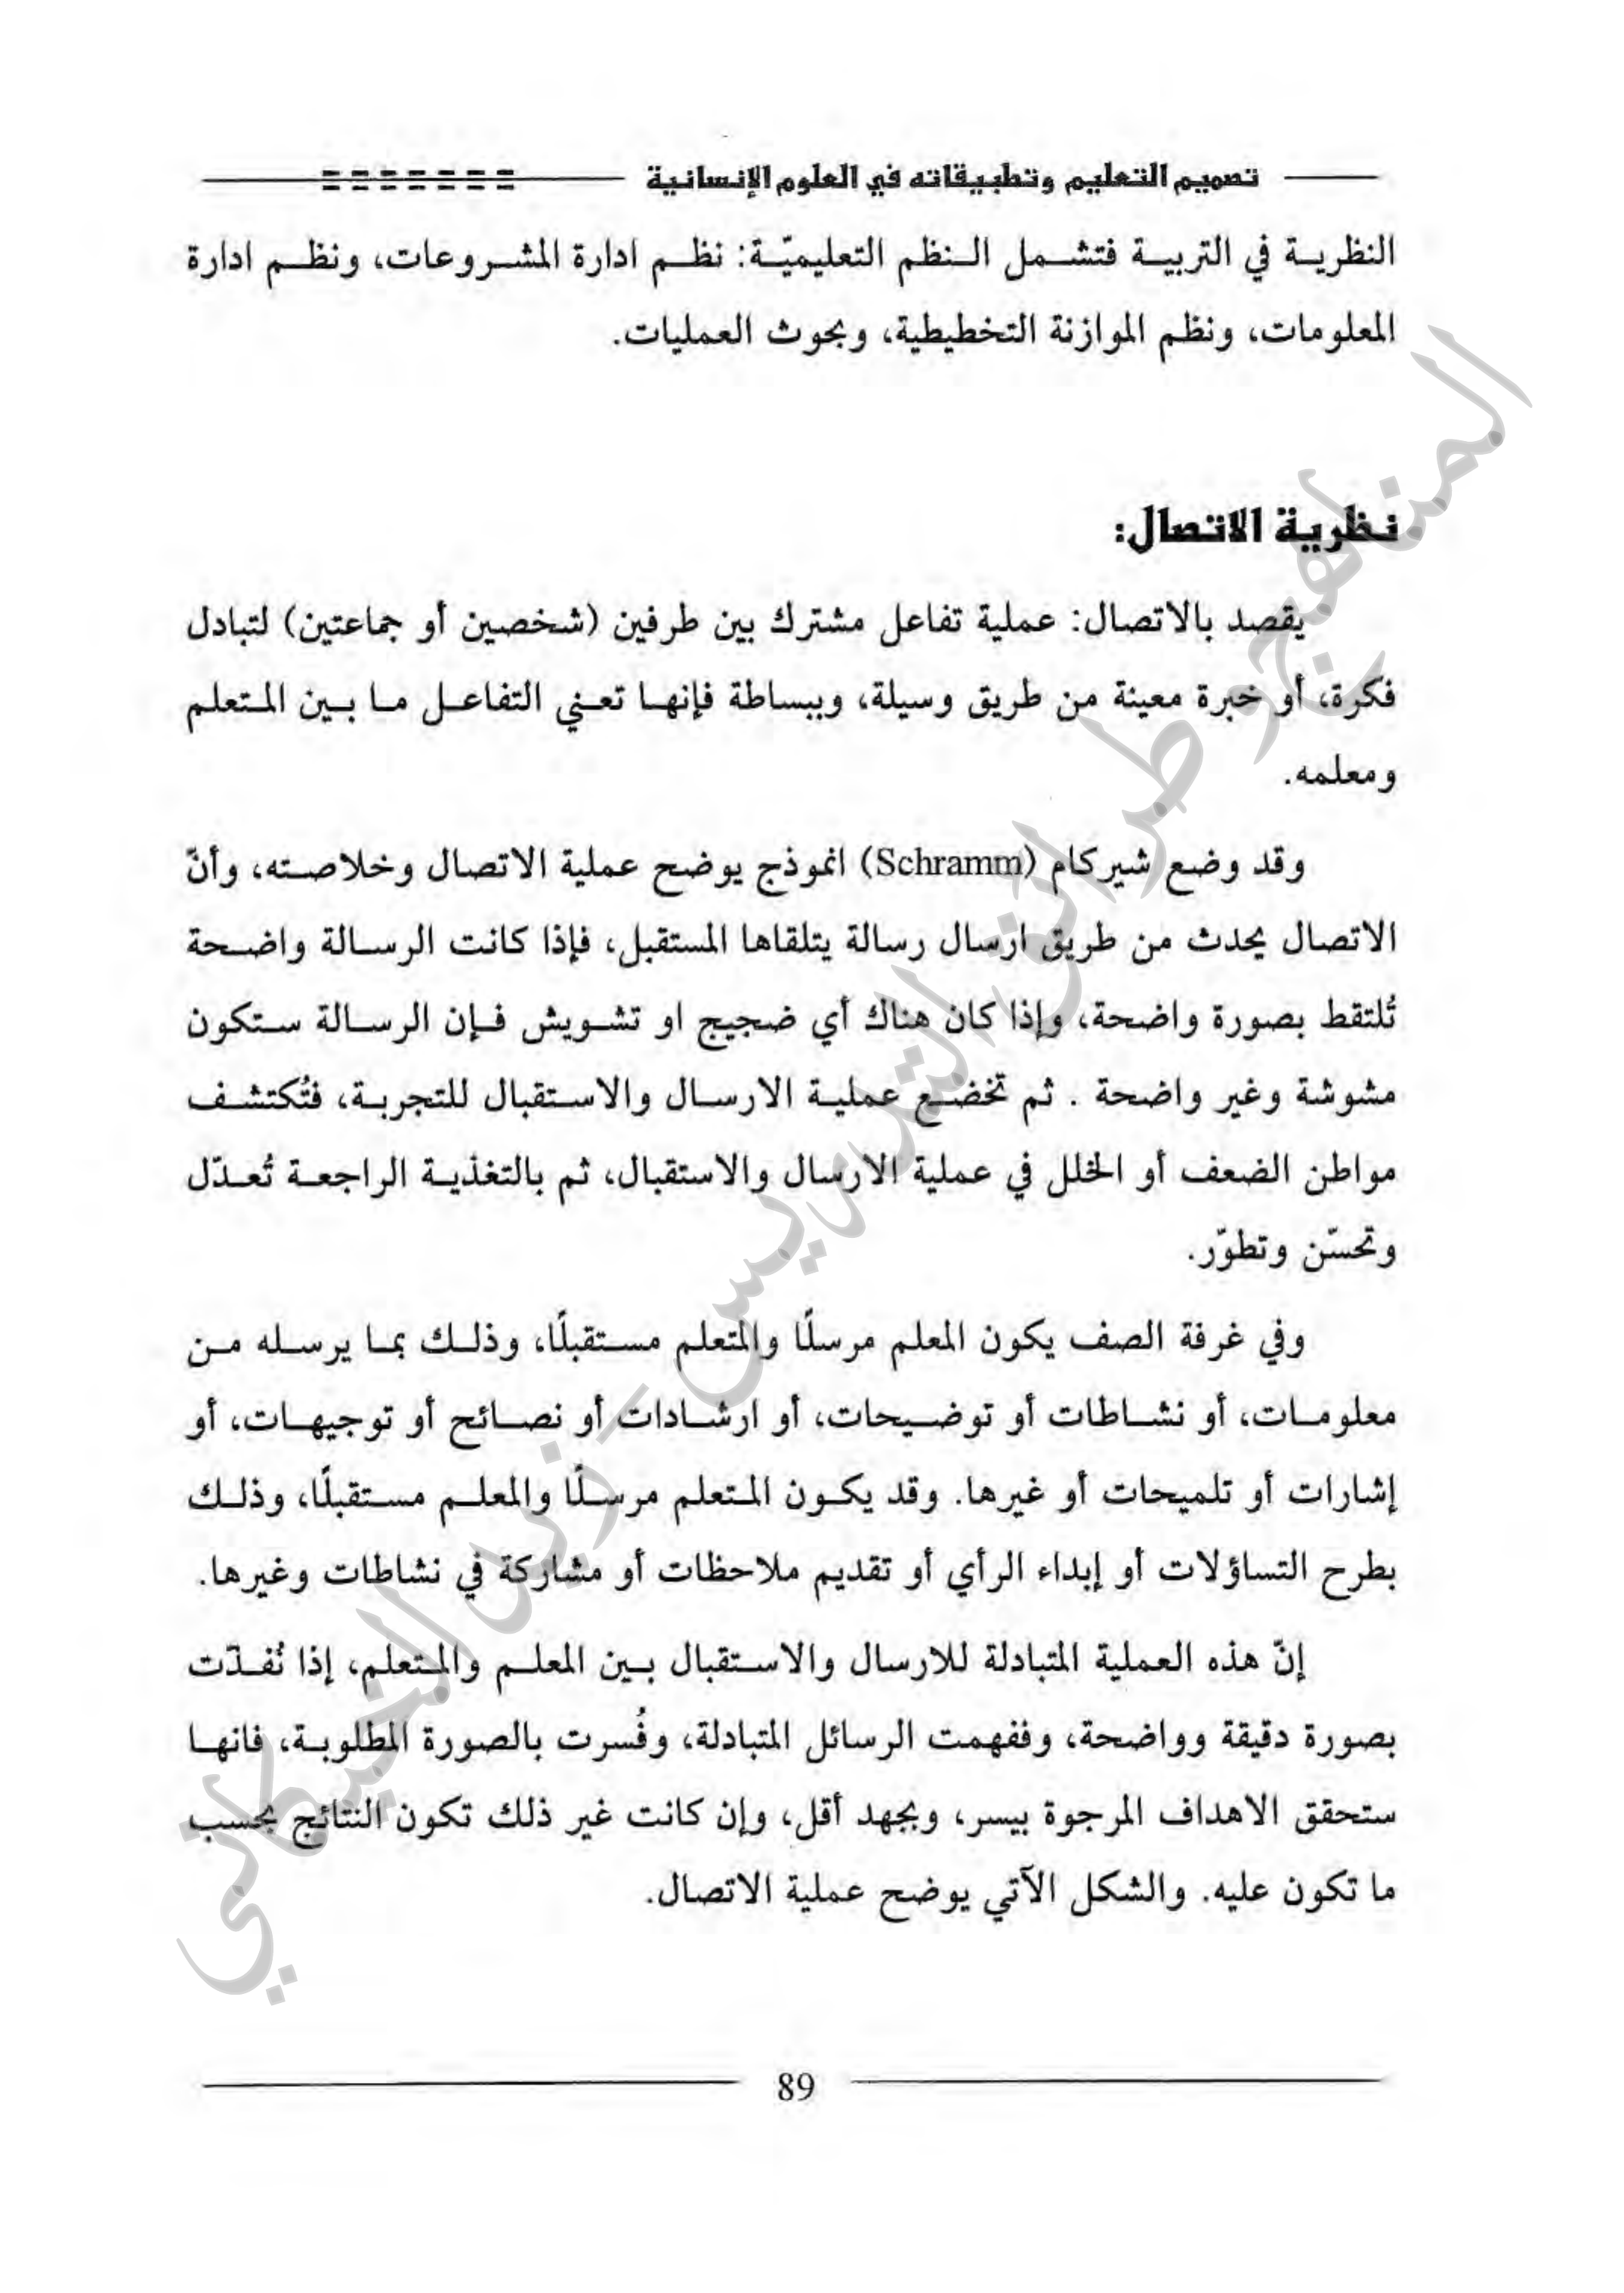 تصميم التعليم وتطبيقاته في العلوم الإنسانية
النظرية في التربية فتشمل النظم التعليميّة: نظم ادارة المشروعات، ونظم ادارة
المعلومات، ونظم الموازنة التخطيطية، وبحوث العمليات.
نظرية الاتصال:
يقصد بالاتصال: عملية تفاعل مشترك بين طرفين (شخصين أو جماعتين) لتبادل
فكرة، أو خبرة معينة من طريق وسيلة، وببساطة فإنها تعني التفاعل ما بين المتعلم
ومعلمه.
وقد وضع شيركام (Schramm) انموذج يوضح عملية الاتصال وخلاصته، وأنّ
الاتصال يحدث من طريق ارسال رسالة يتلقاها المستقبل، فإذا كانت الرسالة واضحة
تُلتقط بصورة واضحة، وإذا كان هناك أي ضجيج او تشويش فإن الرسالة ستكون
مشوشة وغير واضحة . ثم تخضع عملية الارسال والاستقبال للتجربة، فتُكتشف
مواطن الضعف أو الخلل في عملية الارسال والاستقبال، ثم بالتغذية الراجعة تُعدّل
وتحسّن وتطوّر.
وفي غرفة الصف يكون المعلم مرسلًا والمتعلم مستقبلًا، وذلك بما يرسله من
معلومات، أو نشاطات أو توضيحات، أو ارشادات أو نصائح أو توجيهات، أو
إشارات أو تلميحات أو غيرها. وقد يكون المتعلم مرسلًا والمعلم مستقبلًا، وذلك
بطرح التساؤلات أو إبداء الرأي أو تقديم ملاحظات أو مشاركة في نشاطات وغيرها.
إنّ هذه العملية المتبادلة للارسال والاستقبال بين المعلم والمتعلم، إذا نُفذّت
بصورة دقيقة وواضحة، وففهمت الرسائل المتبادلة، وفُسرت بالصورة المطلوبة، فانها
ستحقق الاهداف المرجوة بيسر، وبجهد أقل، وإن كانت غير ذلك تكون النتائج بحسب
ما تكون عليه. والشكل الآتي يوضح عملية الاتصال.
89
المناهج وطرائق التدريس - زيد الخيكاني